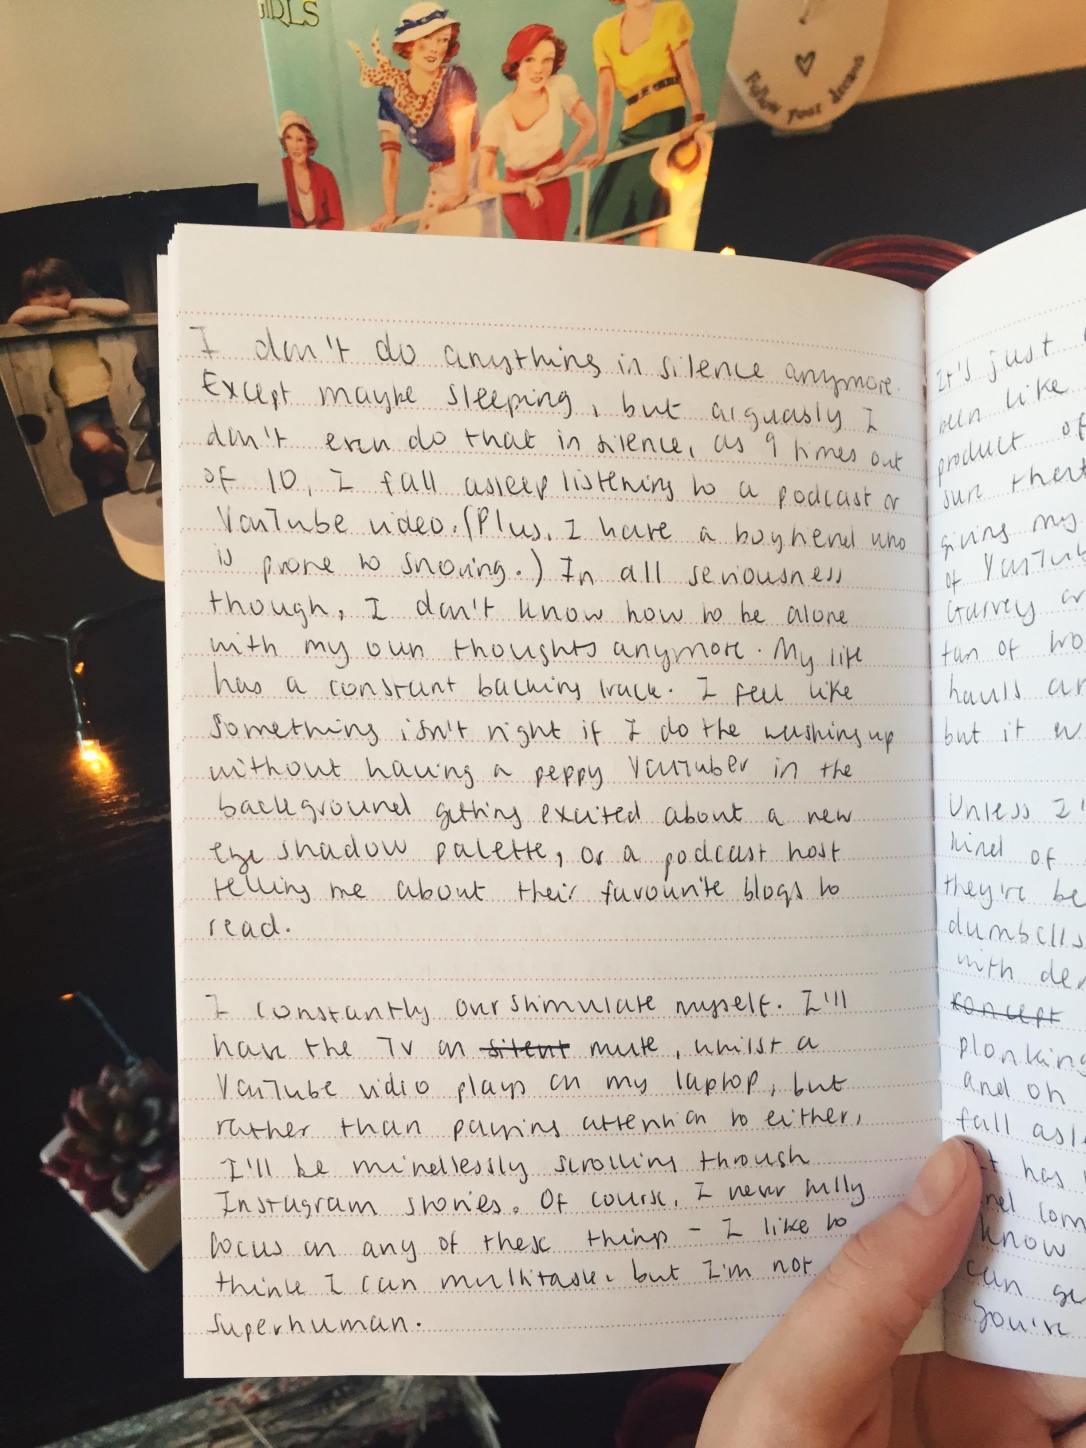 GIRLS
Follow your dreams
I don't do anything in silence anymore.
Except maybe sleeping, but arguably I
don't even do that in silence, as 9 times out
of 10, I fall asleep listening to a podcast or
YouTube video. (Plus, I have a boyfriend who
is prone to snoring.) In all seriousness
though, I don't know how to be alone
with my own thoughts anymore. My life
has a constant backing track. I feel like
something isn't right if I do the washing up
without having a peppy YouTuber in the
background getting excited about a new
eye shadow palette, or a podcast host
telling me about their favourite blogs to
read.
I constantly overstimulate myself. I'll
have the TV on silent mute, whilst a
YouTube video plays on my laptop, but
rather than paying attention to either,
I'll be mindlessly scrolling through
Instagram stories. Of course, I never fully
focus on any of these things - I like to
think I can multitask, but I'm not
superhuman.
It's just
been like
product of
sure there
giving my
of YouTub
Garvey
fan of
hauls
but it
Unless I'
kind of
they're be
dumbells
with
concept
plonking
and oh
fall asle
It has
know
can
you're